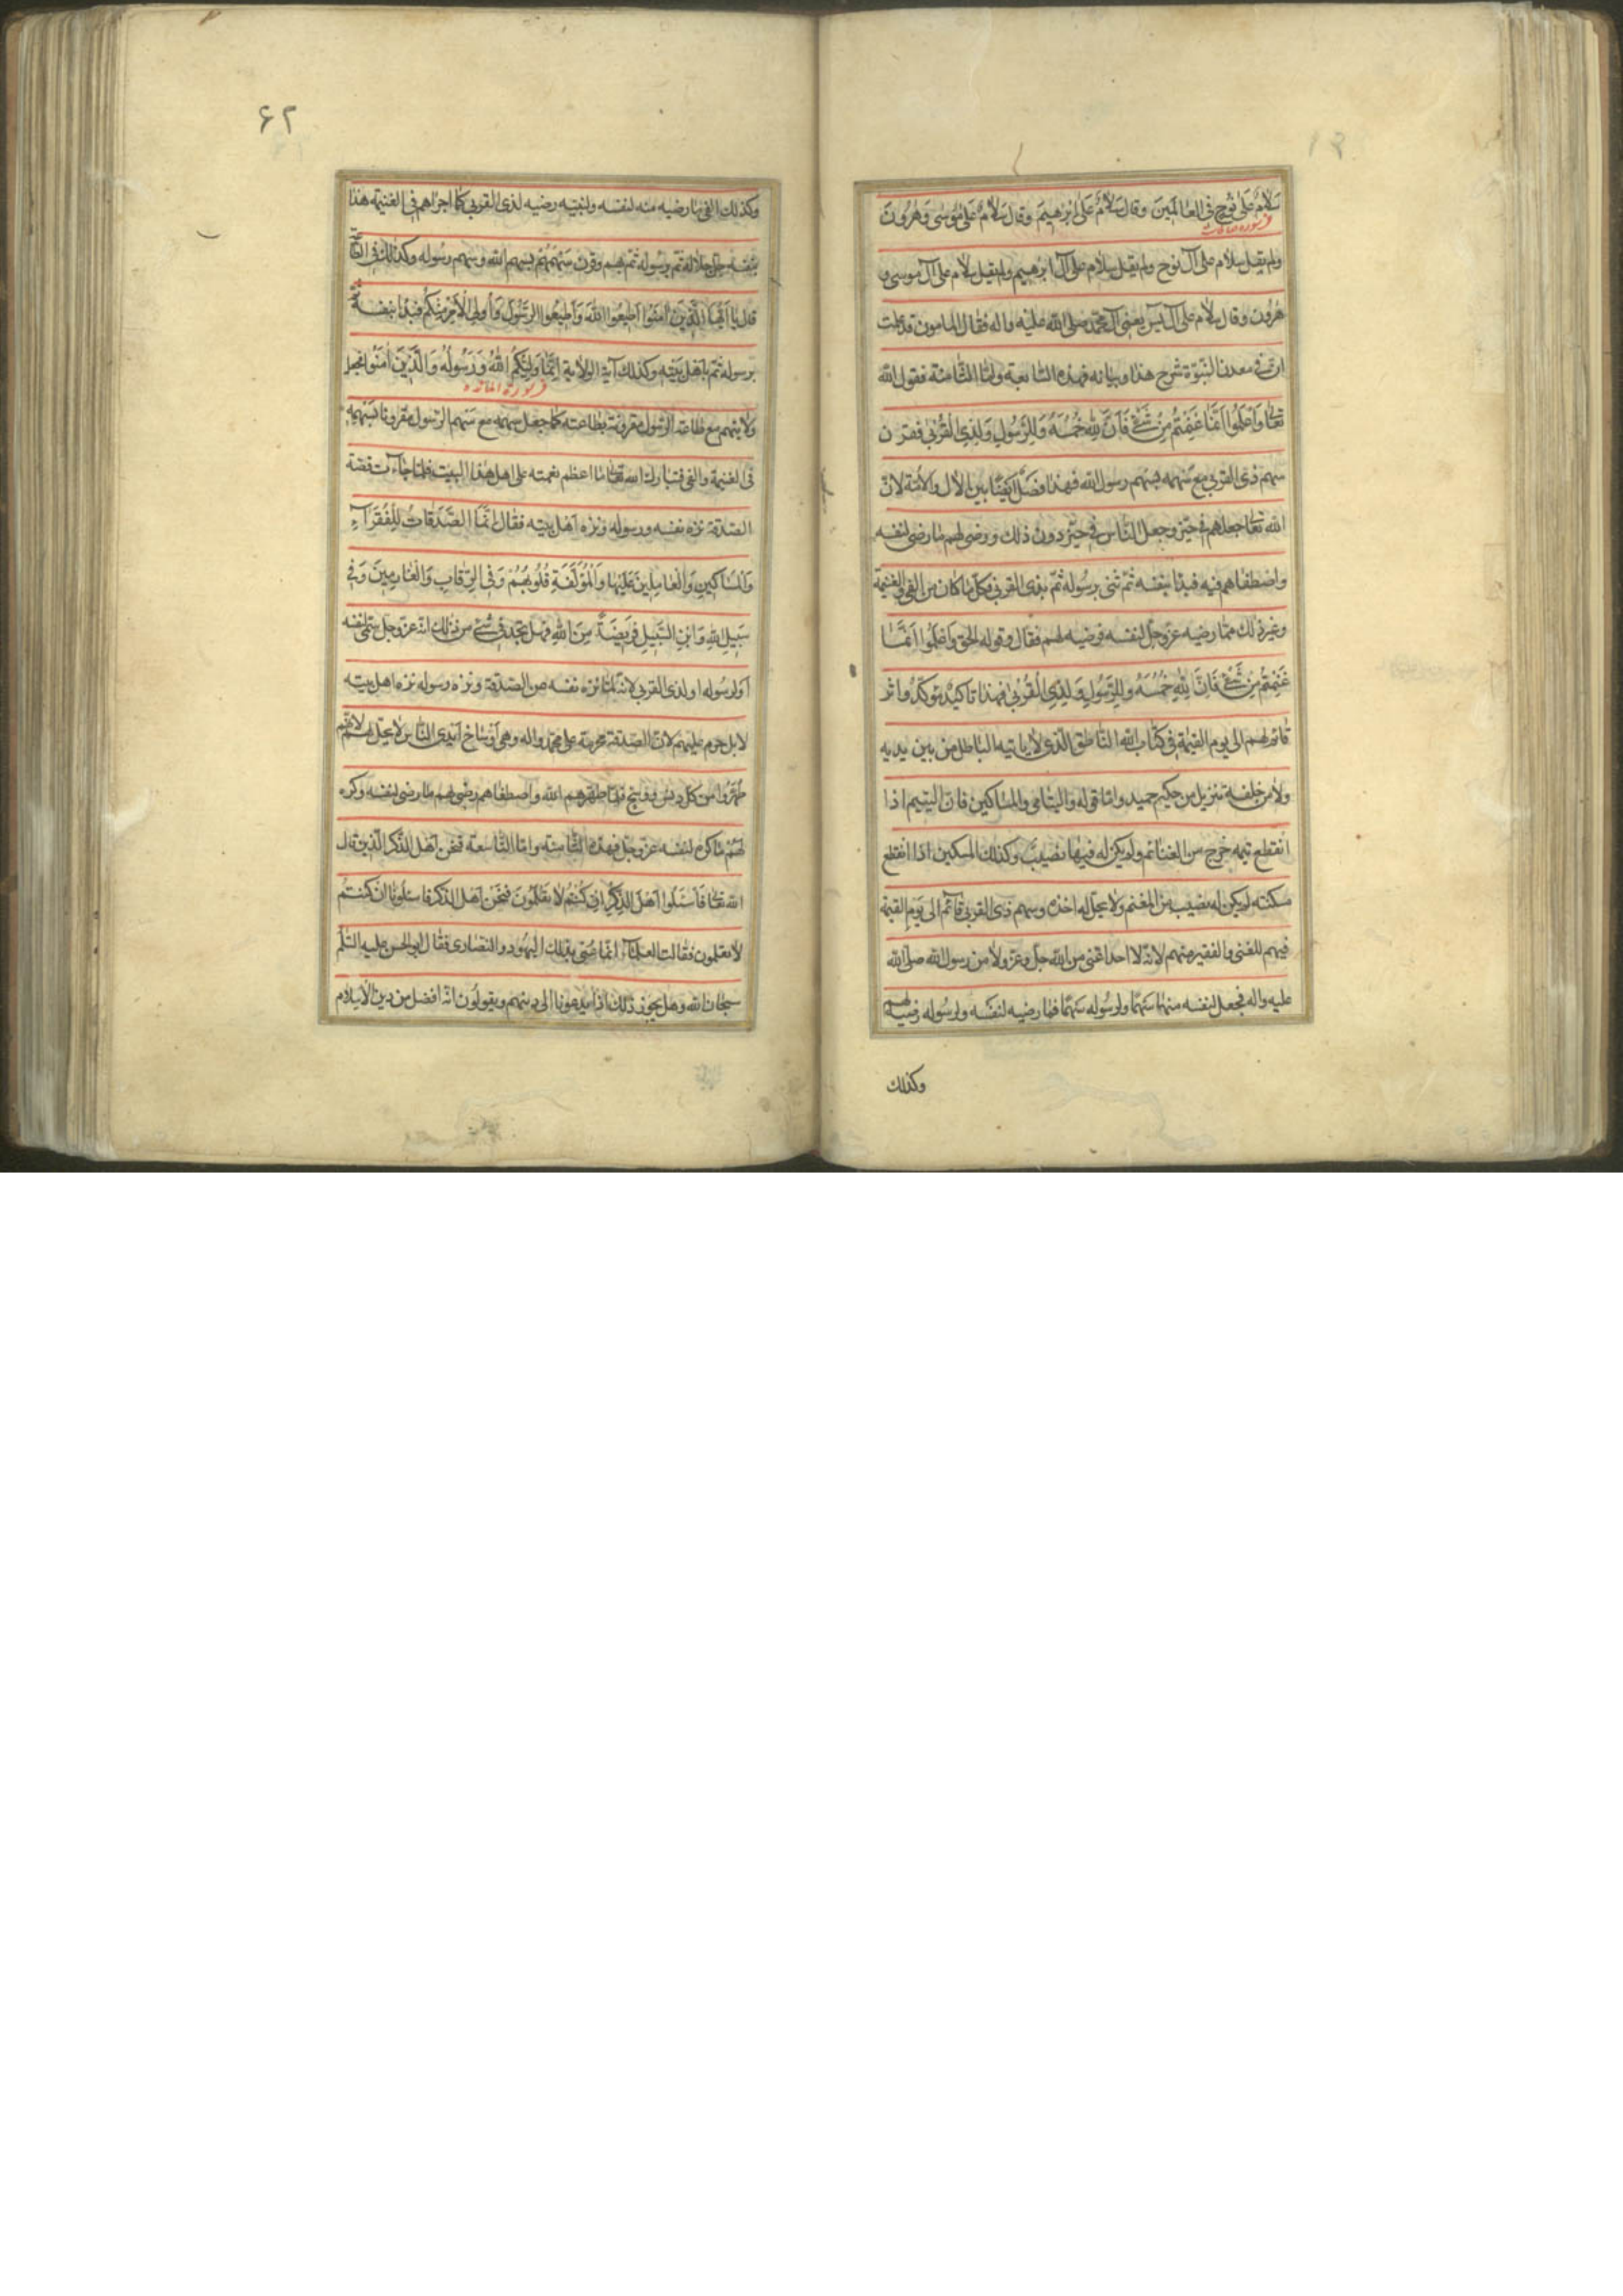 سَلامٌ عَلى نُوحٍ فى العالَمينَ وقال سَلامٌ عَلى اِبْرهيمَ وقال سَلامٌ عَلى مُوسى وَهرُونَ
ولم يقل سلام على آل نوح ولم يقل سلام على آل ابرهيم ولم يقل سلام على آل موسى و
هرون وقال سلام على آل يس يعنى آل محمّد صلى الله عليه واله فقال المامون قد علمت
ان فى معدن النبوّة شرح هذا وبيانه فهذه السابعة وامّا الثامنة فقول الله
تعا وَاعلَمُوا اَنّما غَنِمْتُم مِنْ شَىْءٍ فَاَنَّ لِلّهِ خُمُسَهُ وَلِلرَّسُولِ وَلِذِى القُرْبى فقرن
سهم ذى القربى مع سهمه بسهم رسول الله فهذا فضل ايضًا بين الآل والامّة لانّ
الله تعا جعلهم فى حيّز وجعل الناس فى حيّز دون ذلك ورضى لهم ما رضى لنفسه
واصطفاهم فيه فبدا بنفسه ثمّ ثنى برسوله ثمّ بذى القربى فكل ما كان من الفى والغنيمة
وغير ذلك ممّا رضيه عزّوجلّ لنفسه فرضيه لهم فقال وقوله الحق وَاعلَمُوا اَنّما
غَنِمْتُم مِنْ شَىْءٍ فَاَنَّ لِلّهِ خُمُسَهُ وَلِلرَّسُولِ وَلِذِى القُرْبى فهذا تاكيد موكّد واثر
قائم لهم الى يوم القيمة فى كتاب الله الناطق الّذى لا ياتيه الباطل من بين يديه
ولا من خلفه تنزيل من حكيم حميد وامّا قوله واليتامى والمساكين فانّ اليتيم اذا
انقطع يتمه خرج من الغنائم ولم يكن له فيها نصيب وكذلك المسكين اذا انقطع
مسكنته لم يكن له نصيب من المغنم ولا يحلّ له اخذه وسهم ذى القربى قائم الى يَومِ القيمة
فيهم للغنى والفقير منهم لانّه لا احد اغنى من الله جلّ وعزّ ولا من رسول الله صلى الله
عليه واله فجعل لنفسه منها سهمًا ولرسوله سهمًا فما رضيه لنفسه ولرسوله رضيه لهم
وكذلك
۶۲
وكذلك الفى ما رضيه منه لنفسه ولنبيّه رضيه لذى القربى كما اجراهم فى الغنيمة فبدا
بنفسه جلّ جلاله ثم برسوله ثم بهم وقرن سهمهم بسهم الله وسهم رسوله وكذلك فى الطاعة
قال يا اَيُّها الَّذينَ آمَنُوا اَطيعُوا اللهَ وَاَطيعُوا الرَّسُولَ وَاُولِى الاَمْرِ مِنْكُم فبدا بنفسه ثم
برسوله ثمّ باهل بيته وكذلك آية الولاية اِنّما وَلِيُّكُمُ اللهُ وَرَسُولُهُ وَالَّذينَ آمَنُوا فجعل
فى سورة المائده
ولايتهم مع طاعة الرسول مقرونة بطاعته كما جعل سهمه مع سهم الرسول مقرونا بسهمهم
فى الغنيمة والفى فتبارك الله تعا ما اعظم نعمته على اهل هذا البيت فلمّا جاءت قصّة
الصدقة نزّه نفسه ورسوله ونزّه اهل بيته فقال اِنَّمَا الصَّدَقاتُ لِلْفُقَراءِ
وَالمَساكينِ وَالْعامِلينَ عَلَيْها وَالْمُؤَلَّفَةِ قُلُوبُهُمْ وَفى الرِّقابِ وَالْغارِمينَ وَفى
سَبيلِ اللهِ وَابْنِ السَّبيلِ فَريضَةً مِنَ اللهِ فهل تجد فى شىء من ذلك انّه عزّوجل سمّى لنفسه
او لرسوله او لذى القربى لانّه لمّا نزّه نفسه عن الصدقة ونزّه رسوله نزّه اهل بيته
لا بل حرم عليهم لانّ الصدقة محرمة على محمّد واله وهى اوساخ ايدى الناس لا يحلّ لهم لانّهم
طهّروا من كلّ دنس ووسخ فلمّا طهّرهم الله واصطفاهم رضى لهم ما رضى لنفسه وكره
لهم ما كره لنفسه عزّوجلّ فهذه الثامنة وامّا التاسعة فنحن اهل الذكر الّذين قال
الله تعا فَاسْئَلُوا اَهْلَ الذِّكْرِ اِنْ كُنْتُمْ لا تَعْلَمُونَ فنحن اهل الذكر فاسئلونا ان كنتم
لا تعلمون فقالت العلماء انّما عنى بذلك اليهود والنصارى فقال ابو الحسن عليه السّلم
سبحان الله وهل يجوز ذلك اذا يدعونا الى دينهم ويقولون انّه افضل من دين الاسلام